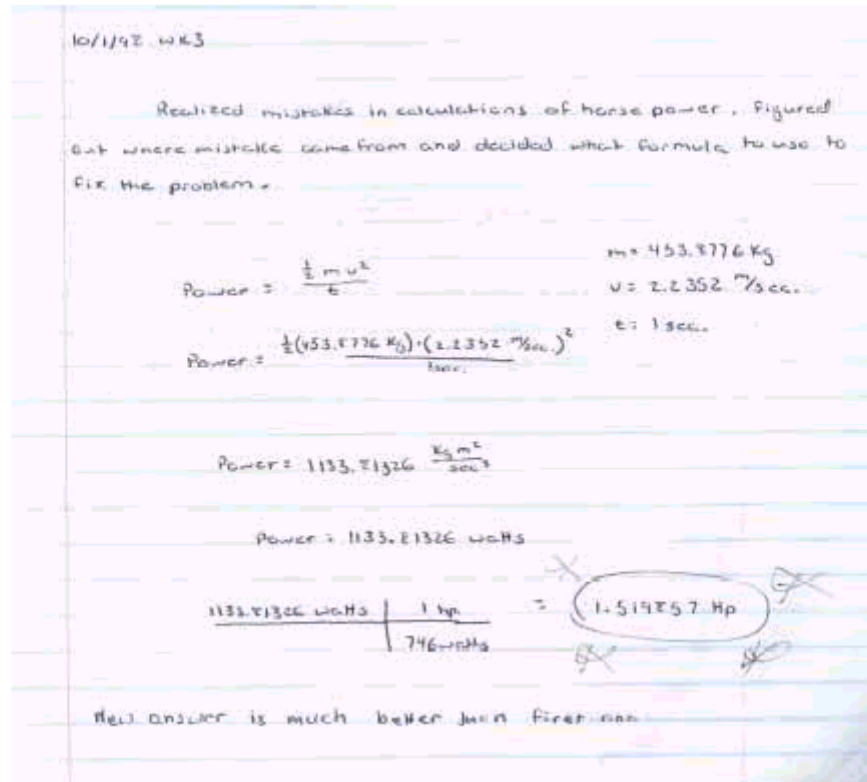 10/1/92 WK3
Realized mistakes in calculations of horse power. Figured
out where mistake came from and decided what formula to use to
fix the problem.
Power = ½ m v² / t
m = 453.8776 Kg
v = 2.2352 m/sec.
t = 1 sec.
Power = ½(453.8776 Kg)·(2.2352 m/sec.)² / 1sec.
Power = 1133.81326 Kg m² / sec³
Power = 1133.81326 watts
1133.81326 watts | 1 hp / 746 watts = 1.519857 Hp
New answer is much better than first one